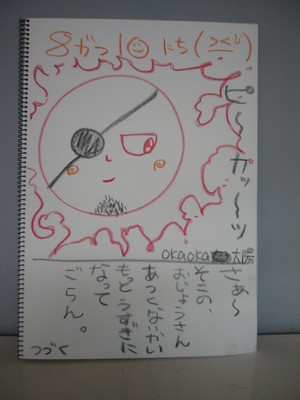 8がつ10にち(><)
ピ〜カッ〜ッ
okaoka 太陽
さぁ〜
そこの、
おじょうさん
あつくないかい
もっとうすぎに
なって
ごらん。
つづく